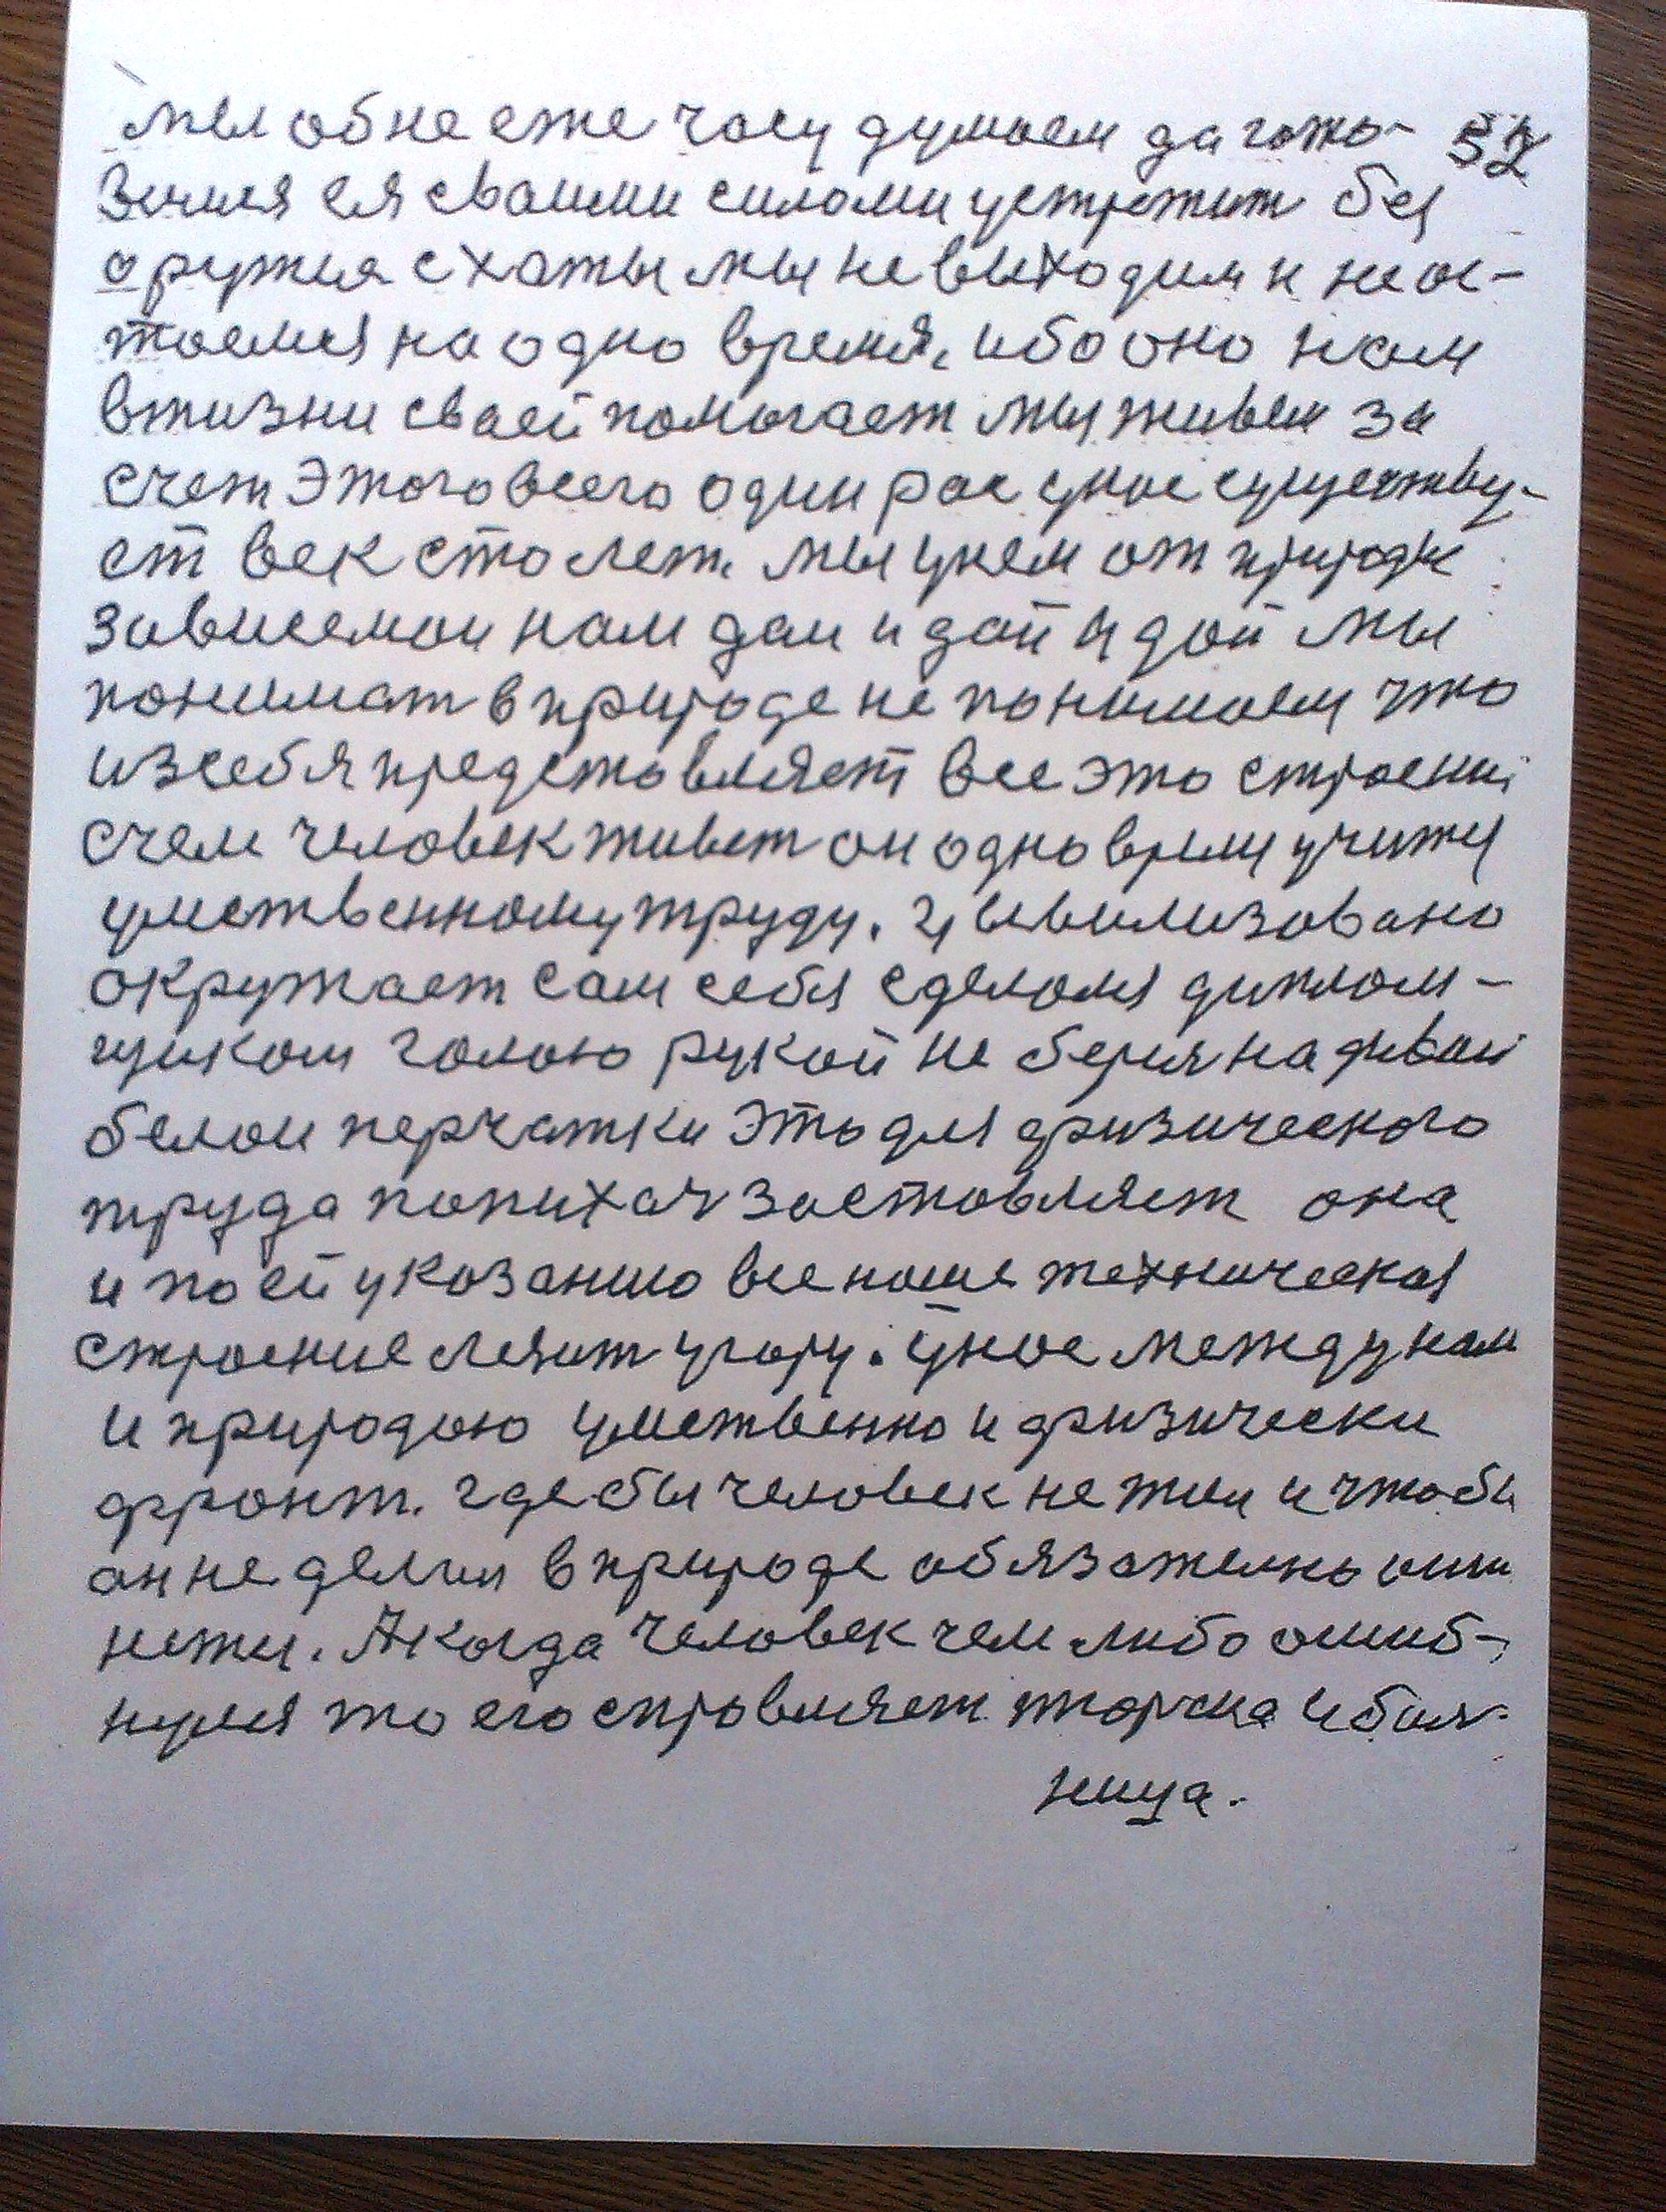 мы об не еже часу думаем да гото- 52
Зимея ея сваими силами устретит без
оружия с хаты мы не выходим и не ос-
таемся на одно время, ибо оно нам
в жизни сваей помогает мы живем за
счет этого всего один рас унас существу-
ет век сто лет. мы унем от природе
зависемои нам дай и дай и дай мы
понимат в природе не понимаем что
изсебя представляет все это строений
счем человек живет он одно время учитя
умственному труду. Цивилизовано
окружает сам себя сделался диплом-
щиком голою рукой не беря надивай
белои перчатки это для физического
труда попихач заставляет она
и по ей указанию все наше техническая
строение лезит угору. Унас между нам
и природою умственно и физически
фронт. где бы человек не жил и чтобы
он не делал в природе обязательно оши
нется. А когда человек чем либо ошиб-
нулся то его справляет тюрма и бол-
ница.